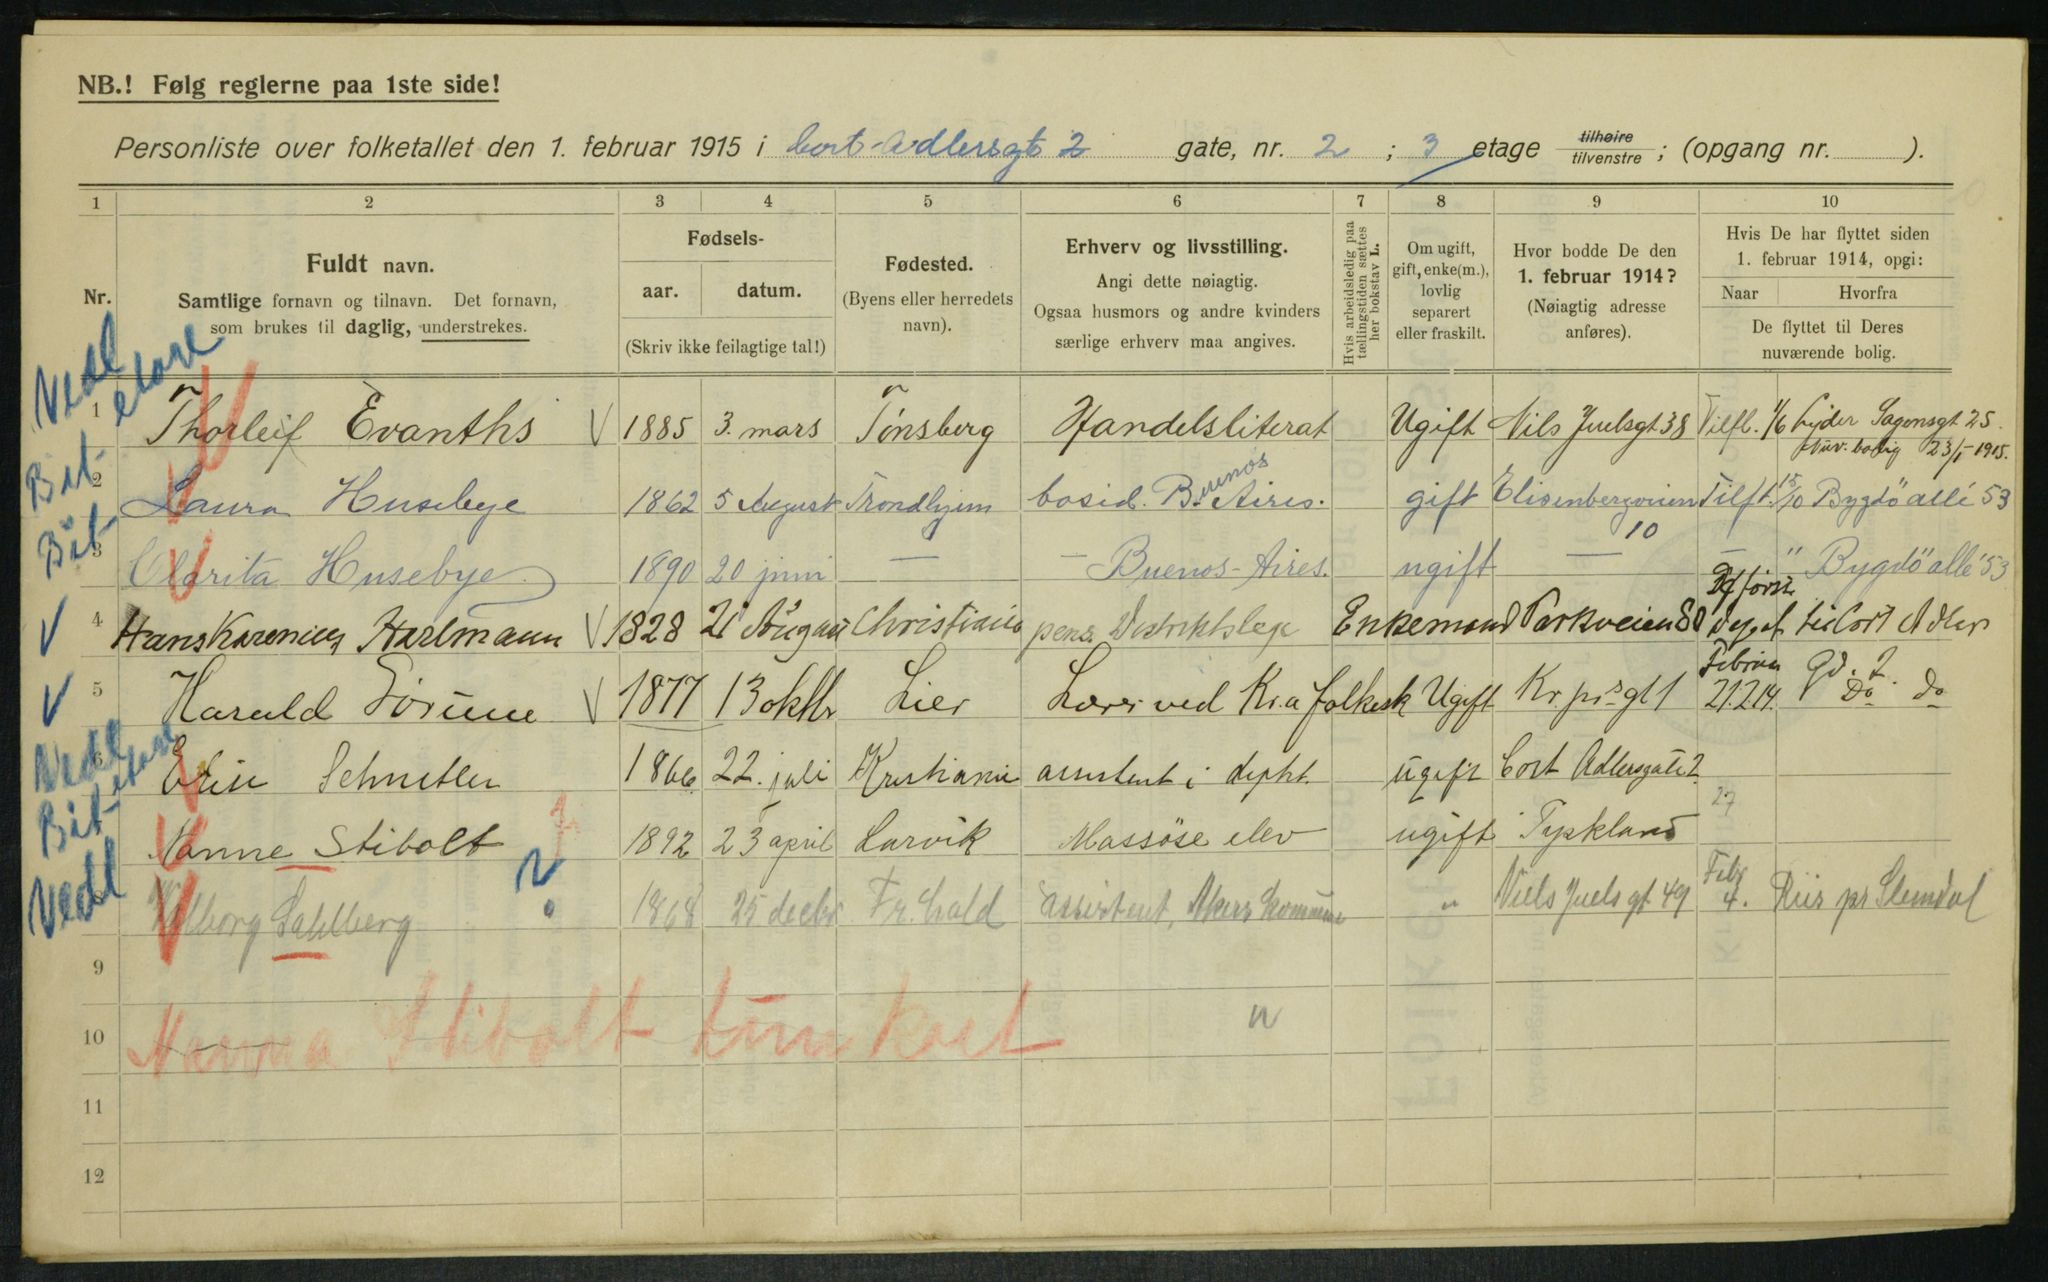 NB.! Følg reglerne paa 1ste side!
Personliste over folketallet den 1. februar 1915 i Cort-Adlersgt 2 gate, nr. 2 ; 3 etage tilhøire tilvenstre ; (opgang nr. ).
1 2 3 4 5 6 7 8 9 10
Nr.
Fuldt navn.
Samtlige fornavn og tilnavn. Det fornavn,
som brukes til daglig, understrekes.
Fødsels-
aar. datum.
(Skriv ikke feilagtige tal!)
Fødested.
(Byens eller herredets
navn).
Erhverv og livsstilling.
Angi dette nøiagtig.
Ogsaa husmors og andre kvinders
særlige erhverv maa angives.
Hvis arbeidsledig paa
tællingstiden sættes
her bokstav L.
Om ugift,
gift, enke(m.),
lovlig
separert
eller fraskilt.
Hvor bodde De den
1. februar 1914?
(Nøiagtig adresse
anføres).
Hvis De har flyttet siden
1. februar 1914, opgi:
Naar Hvorfra
De flyttet til Deres
nuværende bolig.
1 Thorleif Evanths 1885 3. mars Tønsberg Handelsliterat Ugift Nils Juelsgt 38 Tilfl. 1/6 Lyder Sagensgt 25.
Nuv. bolig 23/1-1915.
2 Laura Husebye 1862 5 August Trondhjem bosid. Buenos Aires. gift Elisenbergveien 10 Tilft. 15/10 Bygdö allé 53
3 Clarita Husebye 1890 20 juni — — Buenos-Aires. ugift — — " Bygdö allé 53
4 Hans Karenius Hartmann 1828 21 August Christiania pens. Distriktslege Enkemand Parkveien til Cort Adlers
Gd. 2.
5 Harald Sørum 1877 13 oktbr Lier Lærer ved Kr.a folkesk Ugift Kr. prs gt 1 Februar 21.2.14. Do Do
6 Elise Schnitler 1866 22. juli Kristiania assistent i depht. ugift Cort Adlersgate 2.
Nanne Stibolt 1892 23 april Larvik Massöse elev ugift Tyskland
27
8 Valborg Sahlberg 1868 25 decbr Fr.hald assistent, Akers kommune " Niels Juels gt 49 Febr 4. Riis pr Slemdal
9
10 Nanna Stibolt tun kort
11
12
Vedl
Bit-
Bit-
Vedl
Bit-
Vedl